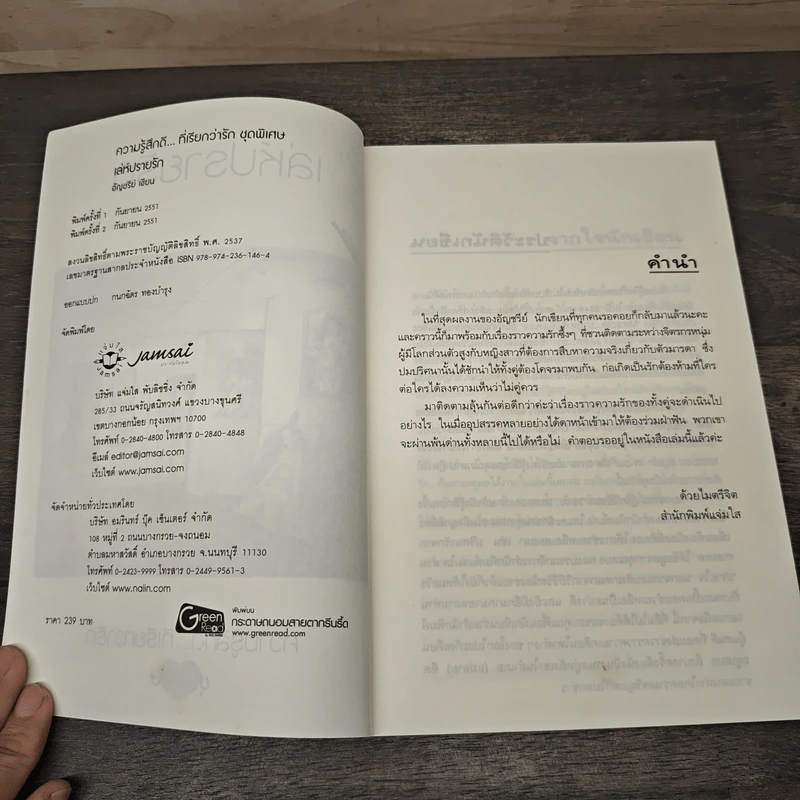 ความรู้สึกดี... ที่เรียกว่ารัก ชุดพิเศษ
เล่ห์ปรายรัก
อัญชรีย์ เขียน
พิมพ์ครั้งที่ 1 กันยายน 2551
พิมพ์ครั้งที่ 2 กันยายน 2551
สงวนลิขสิทธิ์ตามพระราชบัญญัติลิขสิทธิ์ พ.ศ. 2537
เลขมาตรฐานสากลประจำหนังสือ ISBN 978-974-236-146-4
ออกแบบปก กนกฉัตร ทองบำรุง
จัดพิมพ์โดย
แจ่มใส
JAMSAI
Jamsai
บริษัท แจ่มใส พับลิชชิ่ง จำกัด
285/33 ถนนจรัญสนิทวงศ์ แขวงบางขุนศรี
เขตบางกอกน้อย กรุงเทพฯ 10700
โทรศัพท์ 0-2840-4800 โทรสาร 0-2840-4848
อีเมล์ editor@jamsai.com
เว็บไซต์ www.jamsai.com
จัดจำหน่ายทั่วประเทศโดย
บริษัท อมรินทร์ บุ๊ค เซ็นเตอร์ จำกัด
108 หมู่ที่ 2 ถนนบางกรวย-จงถนอม
ตำบลมหาสวัสดิ์ อำเภอบางกรวย จ.นนทบุรี 11130
โทรศัพท์ 0-2423-9999 โทรสาร 0-2449-9561-3
เว็บไซต์ www.naiin.com
ราคา 239 บาท
Green Read
พิมพ์บน
กระดาษถนอมสายตากรีนรี้ด
www.greenread.com
คำนำ
ในที่สุดผลงานของอัญชรีย์ นักเขียนที่ทุกคนรอคอยก็กลับมาแล้วนะคะ
และคราวนี้ก็มาพร้อมกับเรื่องราวความรักซึ้งๆ ที่ชวนติดตามระหว่างจิตรกรหนุ่ม
ผู้มีโลกส่วนตัวสูงกับหญิงสาวที่ต้องการสืบหาความจริงเกี่ยวกับตัวมารดา ซึ่ง
ปมปริศนานั้นได้ชักนำให้ทั้งคู่ต้องโคจรมาพบกัน ก่อเกิดเป็นรักต้องห้ามที่ใคร
ต่อใครได้ลงความเห็นว่าไม่คู่ควร
มาติดตามลุ้นกันต่อดีกว่าค่ะว่าเรื่องราวความรักของทั้งคู่จะดำเนินไป
อย่างไร ในเมื่ออุปสรรคหลายอย่างได้ดาหน้าเข้ามาให้ต้องร่วมฝ่าฟัน พวกเขา
จะผ่านพ้นด่านทั้งหลายนี้ไปได้หรือไม่ คำตอบรออยู่ในหนังสือเล่มนี้แล้วค่ะ
ด้วยไมตรีจิต
สำนักพิมพ์แจ่มใส